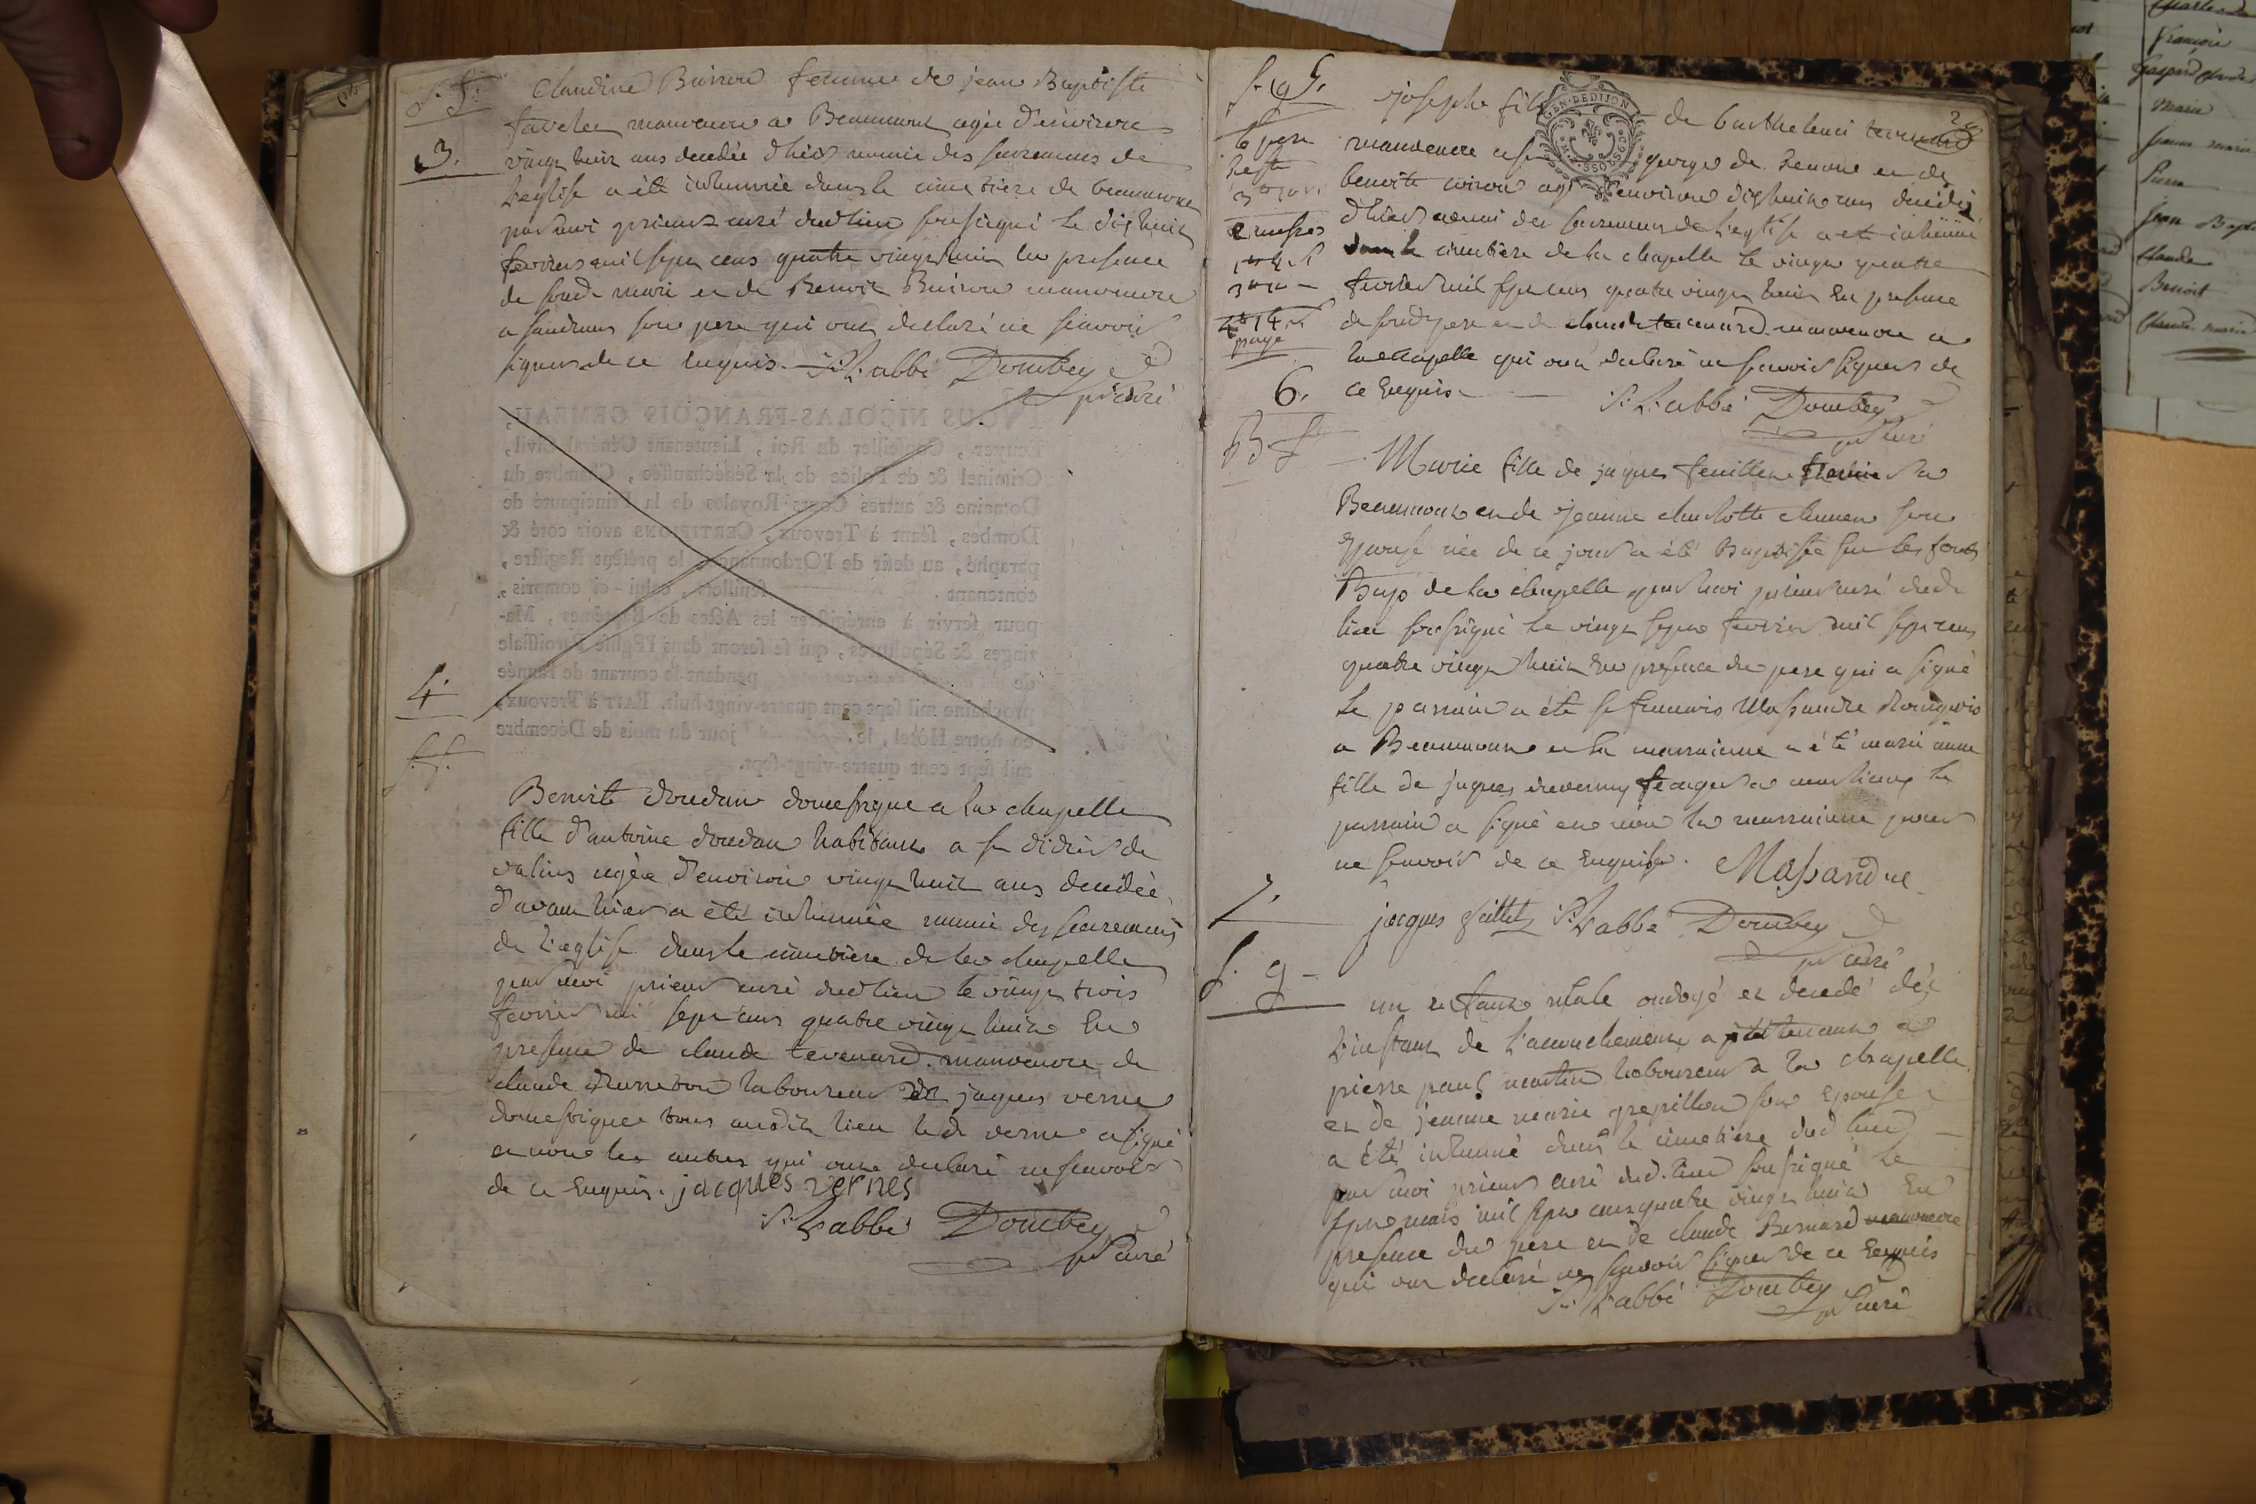 S. f.
3.
Claudine Buiron femme de jean Baptiste
manoeuvre a Beaumont agée d'environ
vingt huit ans decedée d'hier munie des sacremens de
L'eglise a été inhumée dans le cimetière de beaumont
par moi prieur curé dud lieu soussigné Le dix huit
fevrier mil sept cens quatre vingt huit en presence
de sond. mari et de Benoit Buiron manoeuvre
a son pere qui ont declaré ne scavoir
signer de ce Enquis. L'abbé Dombey
pr curé
NOUS NICOLAS-FRANÇOIS GEMEAU,
Ecuyer, Conseiller du Roi, Lieutenant Général Civil,
Criminel & de Police de la Sénéchaussée, Chambre du
Domaine & autres Cours Royales de la Principauté de
Dombes, séant à Trevoux; CERTIFIONS avoir coté &
paraphé, au desir de l'Ordonnance, le présent Registre,
contenant feuillets, celui-ci compris,
pour servir à enrégistrer les Actes de Baptêmes, Ma-
riages & Sépultures, qui se feront dans l'Eglise Paroissiale
de pendant le courant de l'année
prochaine mil sept cent quatre-vingt-huit. FAIT à Trevoux,
en notre Hôtel, le jour du mois de Décembre
mil sept cent quatre-vingt-sept.
4.
S. f.
Benoite doudan domestique a La chapelle
fille d'antoine doudan habitant a St didier de
valins agée d'environ vingt huit ans decedée
d'avant hier a été inhumée munie des sacremens
de L'eglise dans le cimetière de la chapelle
par moi prieur curé dud lieu le vingt trois
fevrier mil sept cens quatre vingt huit En
presence de claude tevenard manoeuvre de
claude laboureur et jaques verne
domestique tous audit lieu led verne a signé
et non les autres qui ont declaré ne scavoir
de ce Enquis. jacques vernes
L'abbé Dombey
pr curé
S. g. 5.
Le pere
reste
2 messes
paye
Joseph fils de Barthelemi tevenard
manoeuvre a St george de Renon et de
benoite agé d'environ dix huit ans decedé
d'hier muni des sacremens de L'eglise a eté inhumé
dans le cimetière de La chapelle le vingt quatre
fevrier mil sept cens quatre vingt huit En presence
de sond pere et de claude tevenard manoeuvre a
La chapelle qui ont declaré ne scavoir signer de
ce Enquis. L'abbé Dombey
pr curé
GEN. DE DIJON
6.
B f
Marie fille de jaques feuillet a
Beaumont et de Jeanne charlotte son
Epouse née de ce jour a été Baptisée sur les fonts
Bap. de La chapelle par moi prieur curé dud
lieu soussigné Le vingt sept fevrier mil sept cens
quatre vingt huit En presence du pere qui a signé
Le parrain a été Sr francois Massandre Bourgeois
a Beaumont et la marraine a été marie anne
fille de jaques a marlieux Le
parrain a signé et non La marraine pour
ne scavoir de ce Enquise. Massandre
jacques L'abbé Dombey
pr curé
7.
S. g
un enfant male ondoyé et decedé dès
L'instant de L'acouchement apartenant a
pierre paul martin laboureur a La chapelle
et de jeanne marie grepillon son Epouse
a été inhumé dans le cimetière dud lieu
par moi prieur curé dud. lieu soussigné Le
sept mars mil sept cens quatre vingt huit En
presence du pere et de claude Bernard manoeuvre
qui ont declaré ne scavoir signer de ce Enquis
L'abbé Dombey
pr curé
francois
marie
jeanne marie
Pierre
jean Bapt
Claude
Benoit
Claude marie